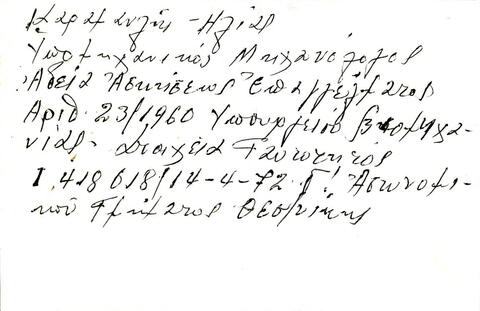 Καραμανλής - Ηλίας
Υπομηχανικός Μηχανολόγος
Άδεια Ασκήσεως Επαγγέλματος
Αριθ. 23/1960 Υπουργείου Βιομηχα-
νίας. Στοιχεία Ταυτότητος
Ι. 418618/14-4-72 Γ! Αστυνομι-
κού Τμήματος Θεσ/νίκης